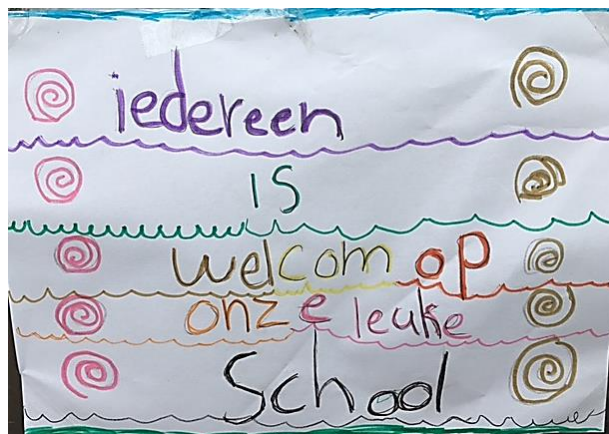 iedereen
is
welcom op
onze leuke
School